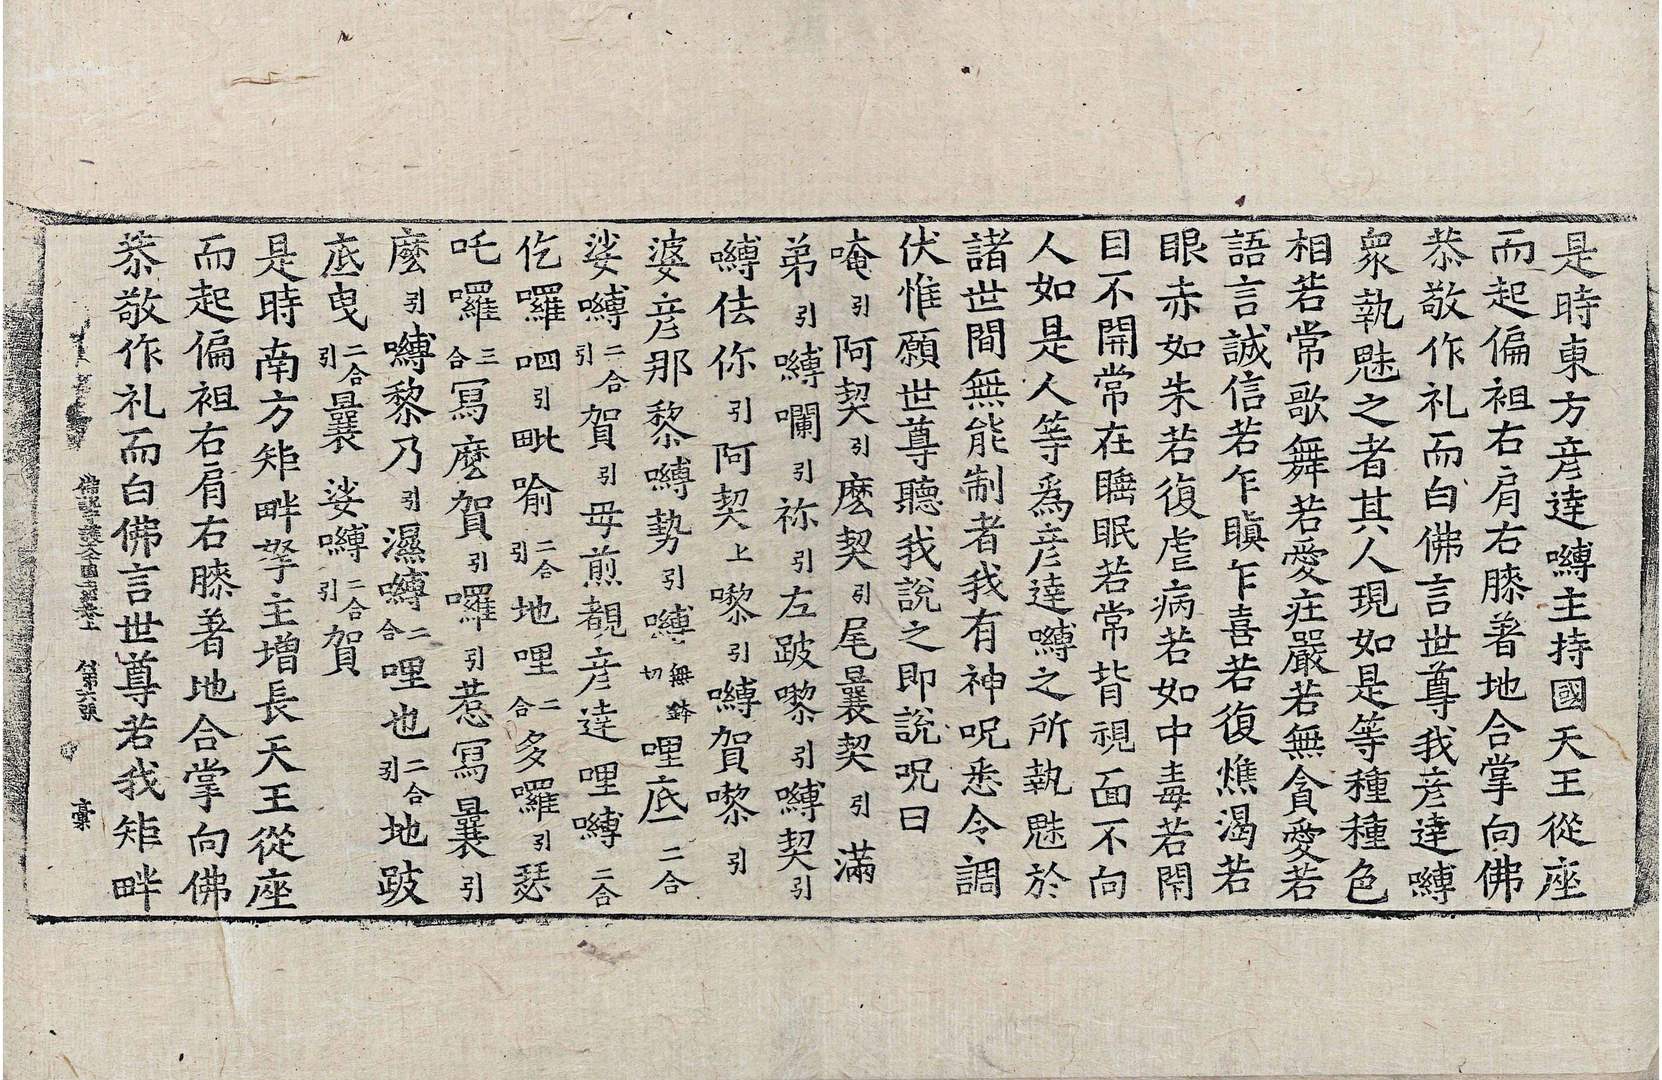 是時東方彦達嚩主持國天王從座
而起偏袒右肩右膝著地合掌向佛
恭敬作礼而白佛言世尊我彦達嚩
衆執魅之者其人現如是等種種色
相若常歌舞若愛莊嚴若無貪愛若
語言誠信若乍瞋乍喜若復燋渴若
眼赤如朱若復虐病若如中毒若閇
目不開常在睡眠若常背視面不向
人如是人等爲彦達嚩之所執魅於
諸世間無能制者我有神呪悉令調
伏惟願世尊聽我說之即說呪曰
唵引阿契引麽契引尾曩契引滿
弟引嚩囒引祢引左跛嚟引嚩契引
嚩佉你引阿契上嚟引嚩賀嚟引
婆彦那黎嚩勢引嚩無鉢切哩底二合
娑嚩二合引賀引毋煎覩彦達哩嚩二合
仡囉呬引毗喻二合引地哩二合多囉引瑟
吒囉三合冩麽賀引囉引惹冩曩引
麽引嚩黎乃引濕嚩二合哩也二合引地跛
底曳二合引曩娑嚩二合引賀
是時南方矩畔拏主增長天王從座
而起偏袒右肩右膝著地合掌向佛
恭敬作礼而白佛言世尊若我矩畔